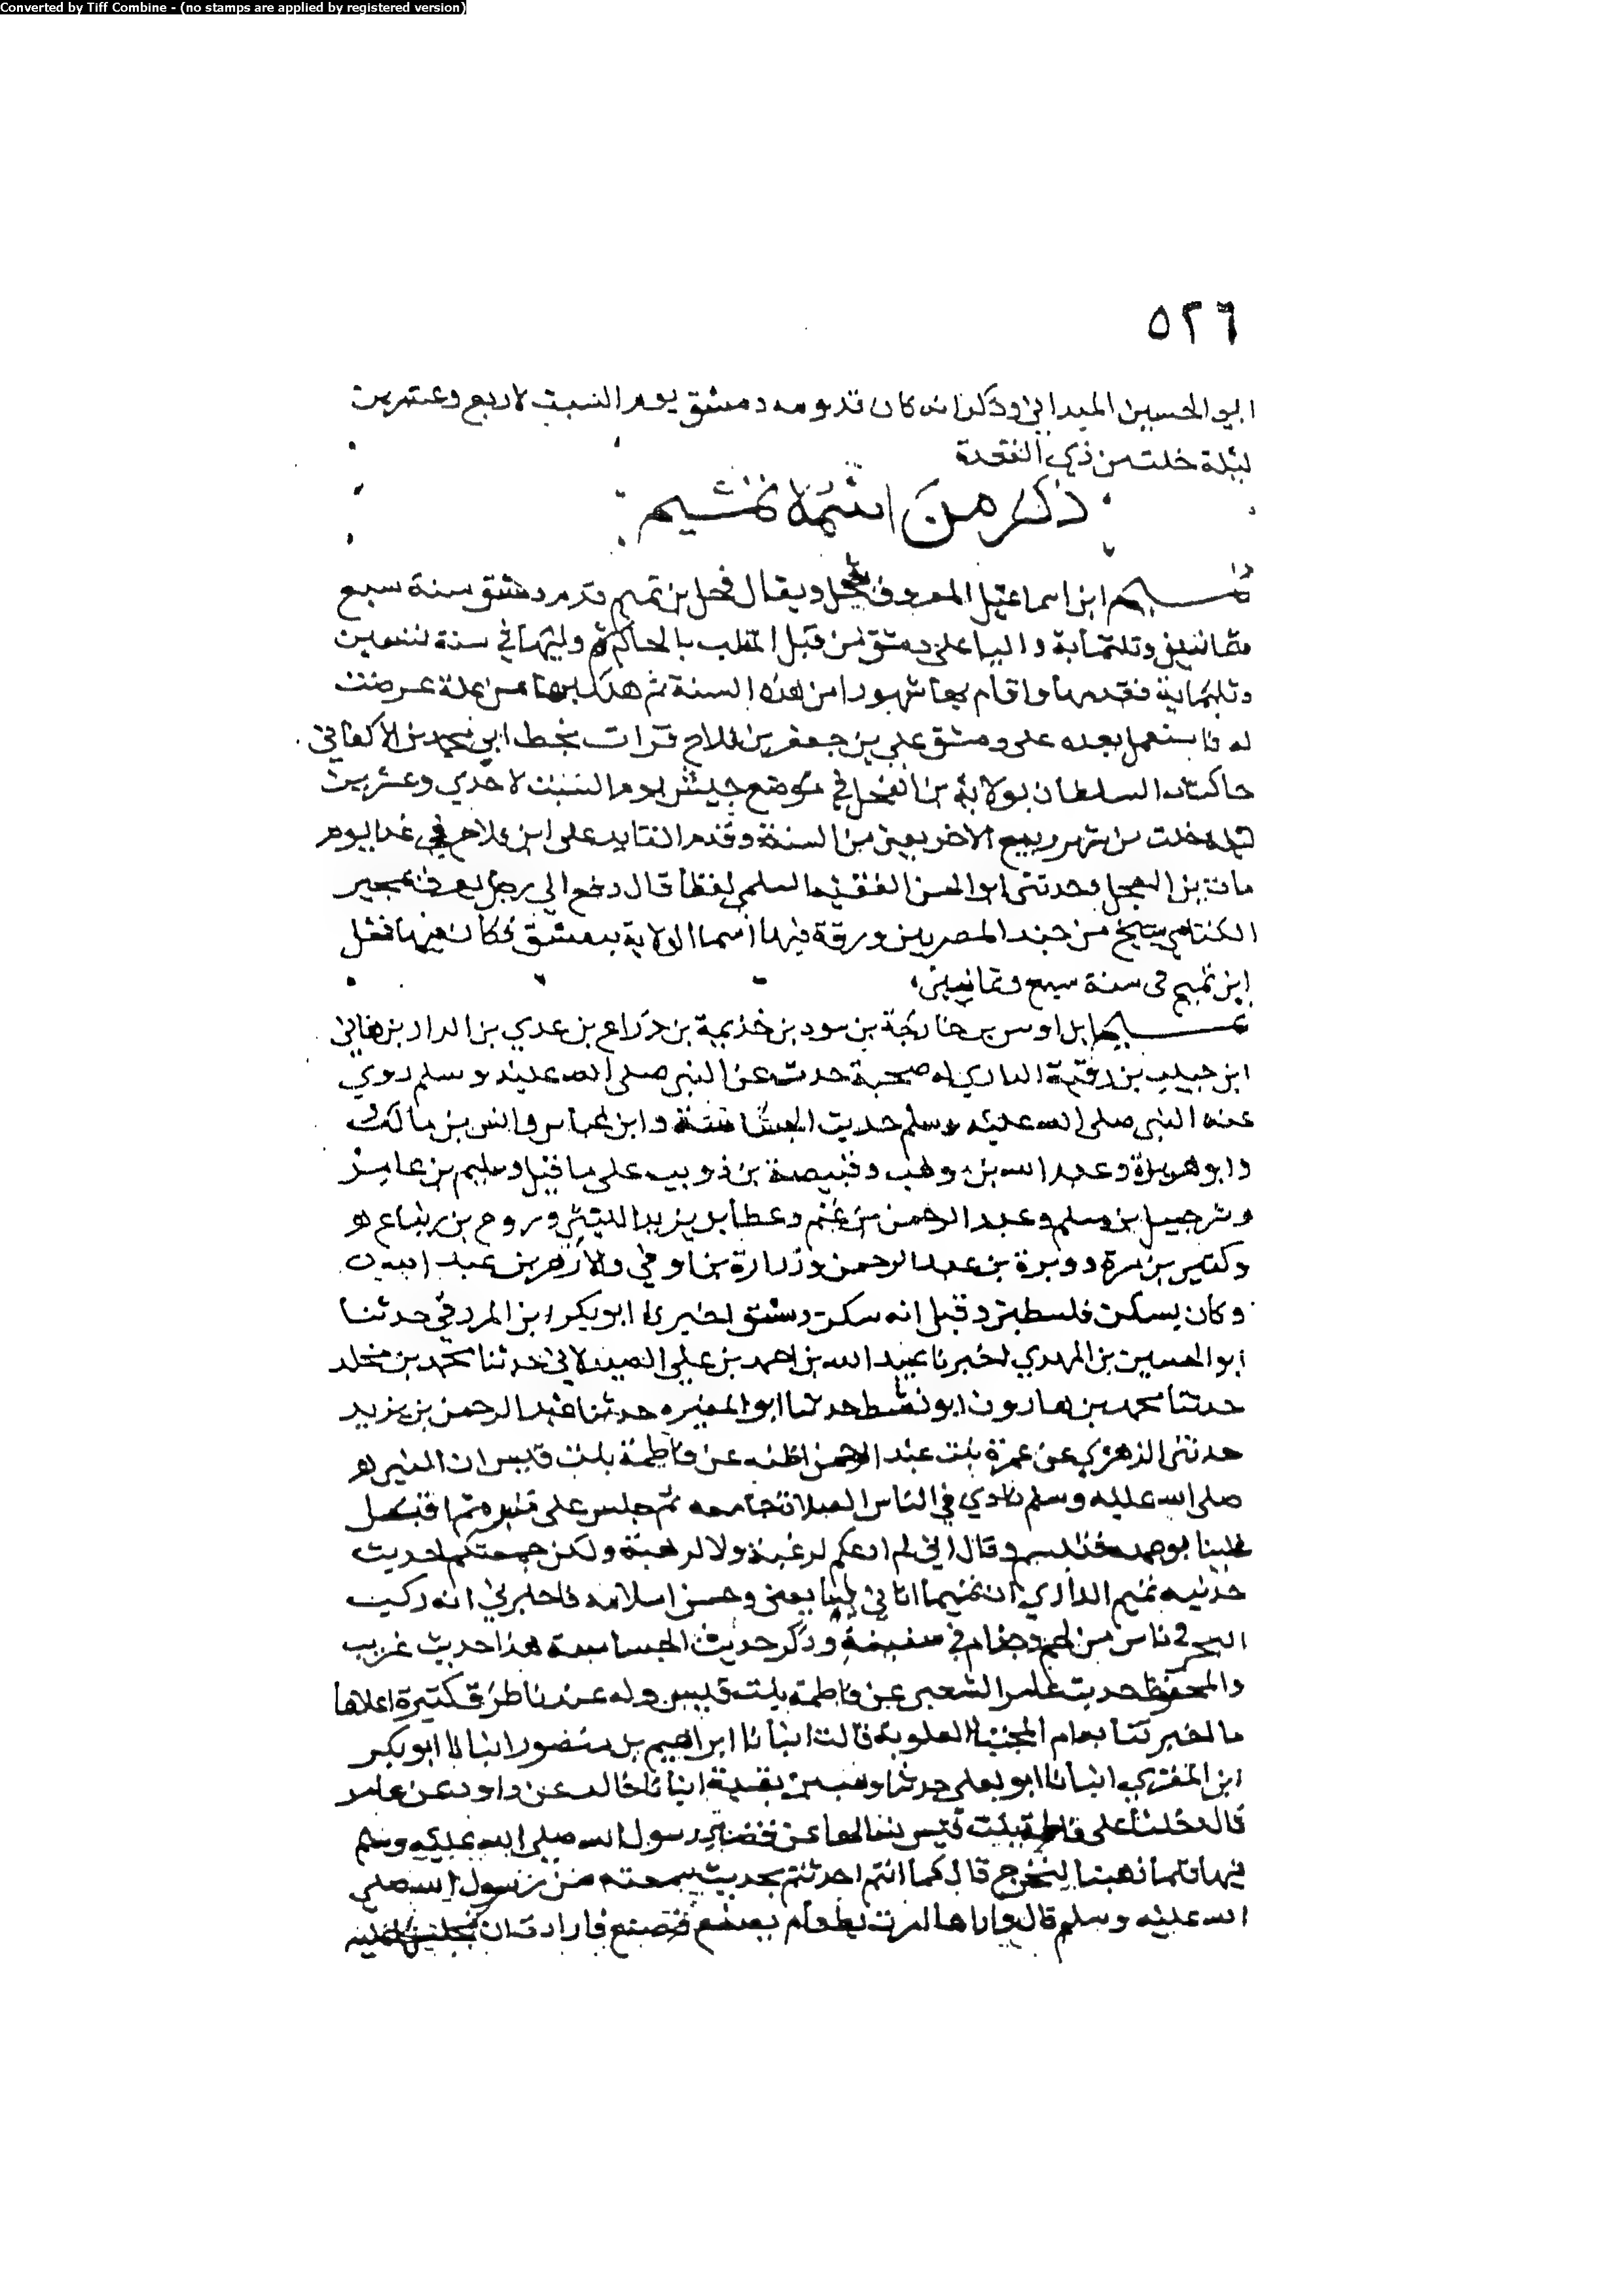 Converted by Tiff Combine - (no stamps are applied by registered version)
٥٢٦
ابو الحسين الميداني وذكر انه كان قدومه دمشق يوم السبت لاربع وعشرين
ليلة خلت من ذي القعدة
ذكر من اسمه تميم
تميم ابن اسماعيل المعروف بفحل ويقال فحل بن تميم قدم دمشق سنة سبع
وثمانين وثلثماية واليا على دمشق من قبل الملقب بالحاكم وليها في سنة تسعين
وثلثماية فقدمها واقام بها شهورا من هذه السنة ثم هلك بها من علة عرضت
له فاستعمل بعده على دمشق علي بن جعفر بن فلاح قرات بخط ابن محمد بن الاكفاني
جا كتاب السلطان بولاية فحل في موضع جيش يوم السبت لاحدي وعشرين
ليلة خلت من شهر ربيع الاخر يعني من السنة وقدم القايد علي ابن فلاح في غد يوم
مات وحدثني ابو الحسن الفقيه السلمي لفظا قال دفع الي رجل يعرف
الكتامي شيخ من جند المصريين ورقة فيها اسما الولاية بدمشق فكان فيها فحل
ابن تميم في سنة سبع وثمانين
تميم ابن اوس بن خارجة بن سود بن خذيمة بن دراع بن عدي بن الدار بن هاني
ابن حبيب بن رقية الداري له صحبة حدث عن النبي صلى الله عليه وسلم روي
عنه النبي صلى الله عليه وسلم حديث الجساسة وابن عباس وانس بن مالك
وابو هريرة وعبد الله بن وهب وقبيصة بن ذويب على ما قيل وسليم بن عامر
وشرحبيل بن مسلم وعبد الرحمن بن غنم وعطا بن يزيد الليثي وروح بن زنباع
وكثير بن مرة ووبرة بن عبد الرحمن وزرارة بن اوفي والازهر بن عبد الله
وكان يسكن فلسطين وقيل انه سكن دمشق اخبرنا ابو بكر ابن المزرفي حدثنا
ابو الحسين بن المهدي اخبرنا عبيد الله بن احمد بن علي الصيدلاني حدثنا محمد بن مخلد
حدثنا محمد بن هارون ابو نشيط حدثنا ابو المغيره حدثنا عبد الرحمن بن يزيد
حدثني الزهري عن عمرة بنت عبد الرحمن اظنه عن فاطمة بنت قيس ان النبي
صلى الله عليه وسلم نادي في الناس الصلاة جامعه ثم جلس على منبره ثم اقبل
علينا بوجهه فتبسم وقال اني لم ادعكم لرغبة ولا لرهبة ولكن جمعتكم لحديث
حدثنيه تميم الداري ان تميما اتاني يعني وحسن اسلامه فاخبرني انه ركب
البحر في ناس من لخم وجذام في سفينة وذكر حديث الجساسة هذا حديث غريب
والمحفوظ حديث عامر الشعبي عن فاطمة بنت قيس وله عندنا طرق كثيرة اعلاها
ما اخبرتنا به ام المجتبا العلوية قالت انبانا ابراهيم بن منصور انبانا ابو بكر
ابن المقري انبانا ابو يعلي حدثنا وهب بن بقية انبانا خالد عن داود عن عامر
قال دخلنا على فاطمة بنت قيس نسالها عن قضا رسول الله صلى الله عليه وسلم
فيها فلما ذهبنا لنخرج قال كما انتم احدثتم بحديث سمعته من رسول الله صلى
الله عليه وسلم قال واراها امرت بطعام يصنع فصنع فارادت ان